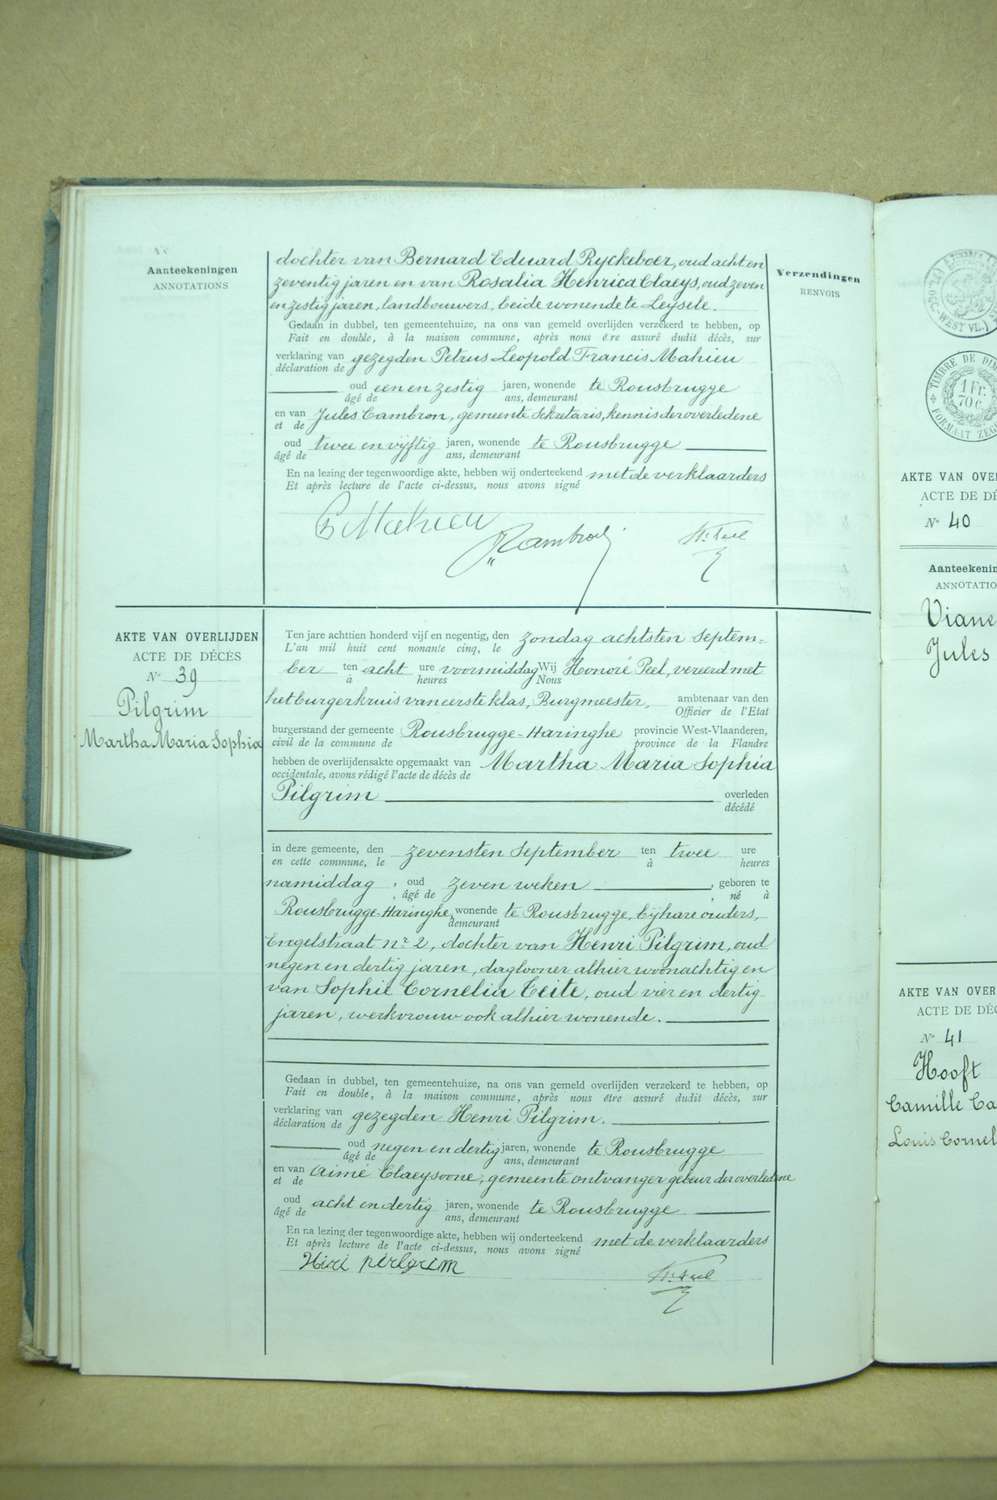 Aanteekeningen
ANNOTATIONS
Verzendingen
RENVOIS
dochter van Bernard Eduard Ryckeboer, oud acht en
zeventig jaren en van Rosalia Henrica Claeys, oud zeven
en zestig jaren, landbouwers, beide wonende te Leysele.
Gedaan in dubbel, ten gemeentehuize, na ons van gemeld overlijden verzekerd te hebben, op
Fait en double, à la maison commune, après nous être assuré dudit décès, sur
verklaring van gezegden Petrus Leopold Francis Mahieu
déclaration de
oud een en zestig jaren, wonende te Rousbrugge
âgé de ans, demeurant
en van Jules Cambron, gemeente Sekretaris, kennis der overledene
et de
oud twee en vijftig jaren, wonende te Rousbrugge
âgé de ans, demeurant
En na lezing der tegenwoordige akte, hebben wij onderteekend met de verklaarders
Et après lecture de l'acte ci-dessus, nous avons signé
Mahieu
Cambron
H. Peel
AKTE VAN OVERLIJDEN
ACTE DE DÉCÈS
No 39
Pilgrim
Martha Maria Sophia
Ten jare achttien honderd vijf en negentig, den zondag achtsten Septem-
L'an mil huit cent nonante cinq, le
ber ten acht ure voormiddag Wij Honoré Peel, vereerd met
à heures Nous
het burgerkruis van eerste klas, Burgmeester, ambtenaar van den
Officier de l'Etat
burgerstand der gemeente Rousbrugge-Haringhe provincie West-Vlaanderen,
civil de la commune de province de la Flandre
hebben de overlijdensakte opgemaakt van Martha Maria Sophia
occidentale, avons rédigé l'acte de décès de
Pilgrim overleden
décédé
in deze gemeente, den zevensten September ten twee ure
en cette commune, le à heures
namiddag, oud zeven weken, geboren te
, âgé de , né à
Rousbrugge-Haringhe, wonende te Rousbrugge, bij hare ouders,
demeurant
Engelstraat nr 2, dochter van Henri Pilgrim, oud
negen en dertig jaren, daglooner alhier woonachtig en
van Sophie Cornelia Teite, oud vier en dertig
jaren, werkvrouw ook alhier wonende.
Gedaan in dubbel, ten gemeentehuize, na ons van gemeld overlijden verzekerd te hebben, op
Fait en double, à la maison commune, après nous être assuré dudit décès, sur
verklaring van gezegden Henri Pilgrim.
déclaration de
oud negen en dertig jaren, wonende te Rousbrugge
âgé de ans, demeurant
en van Aimé Claeysoone, gemeente ontvanger gebuur der overledene
et de
oud acht en dertig jaren, wonende te Rousbrugge
âgé de ans, demeurant
En na lezing der tegenwoordige akte, hebben wij onderteekend met de verklaarders
Et après lecture de l'acte ci-dessus, nous avons signé
Hiri pirlgrim
H. Peel
TIMBRE DE DIM
1 FR.
70 C.
FORMAAT ZEG
AKTE VAN OVER
ACTE DE DÉ
No 40
Aanteekenin
ANNOTATIO
Viane
Jules
AKTE VAN OVER
ACTE DE DÉC
No 41
Hooft
Camille Ca
Louis Cornel